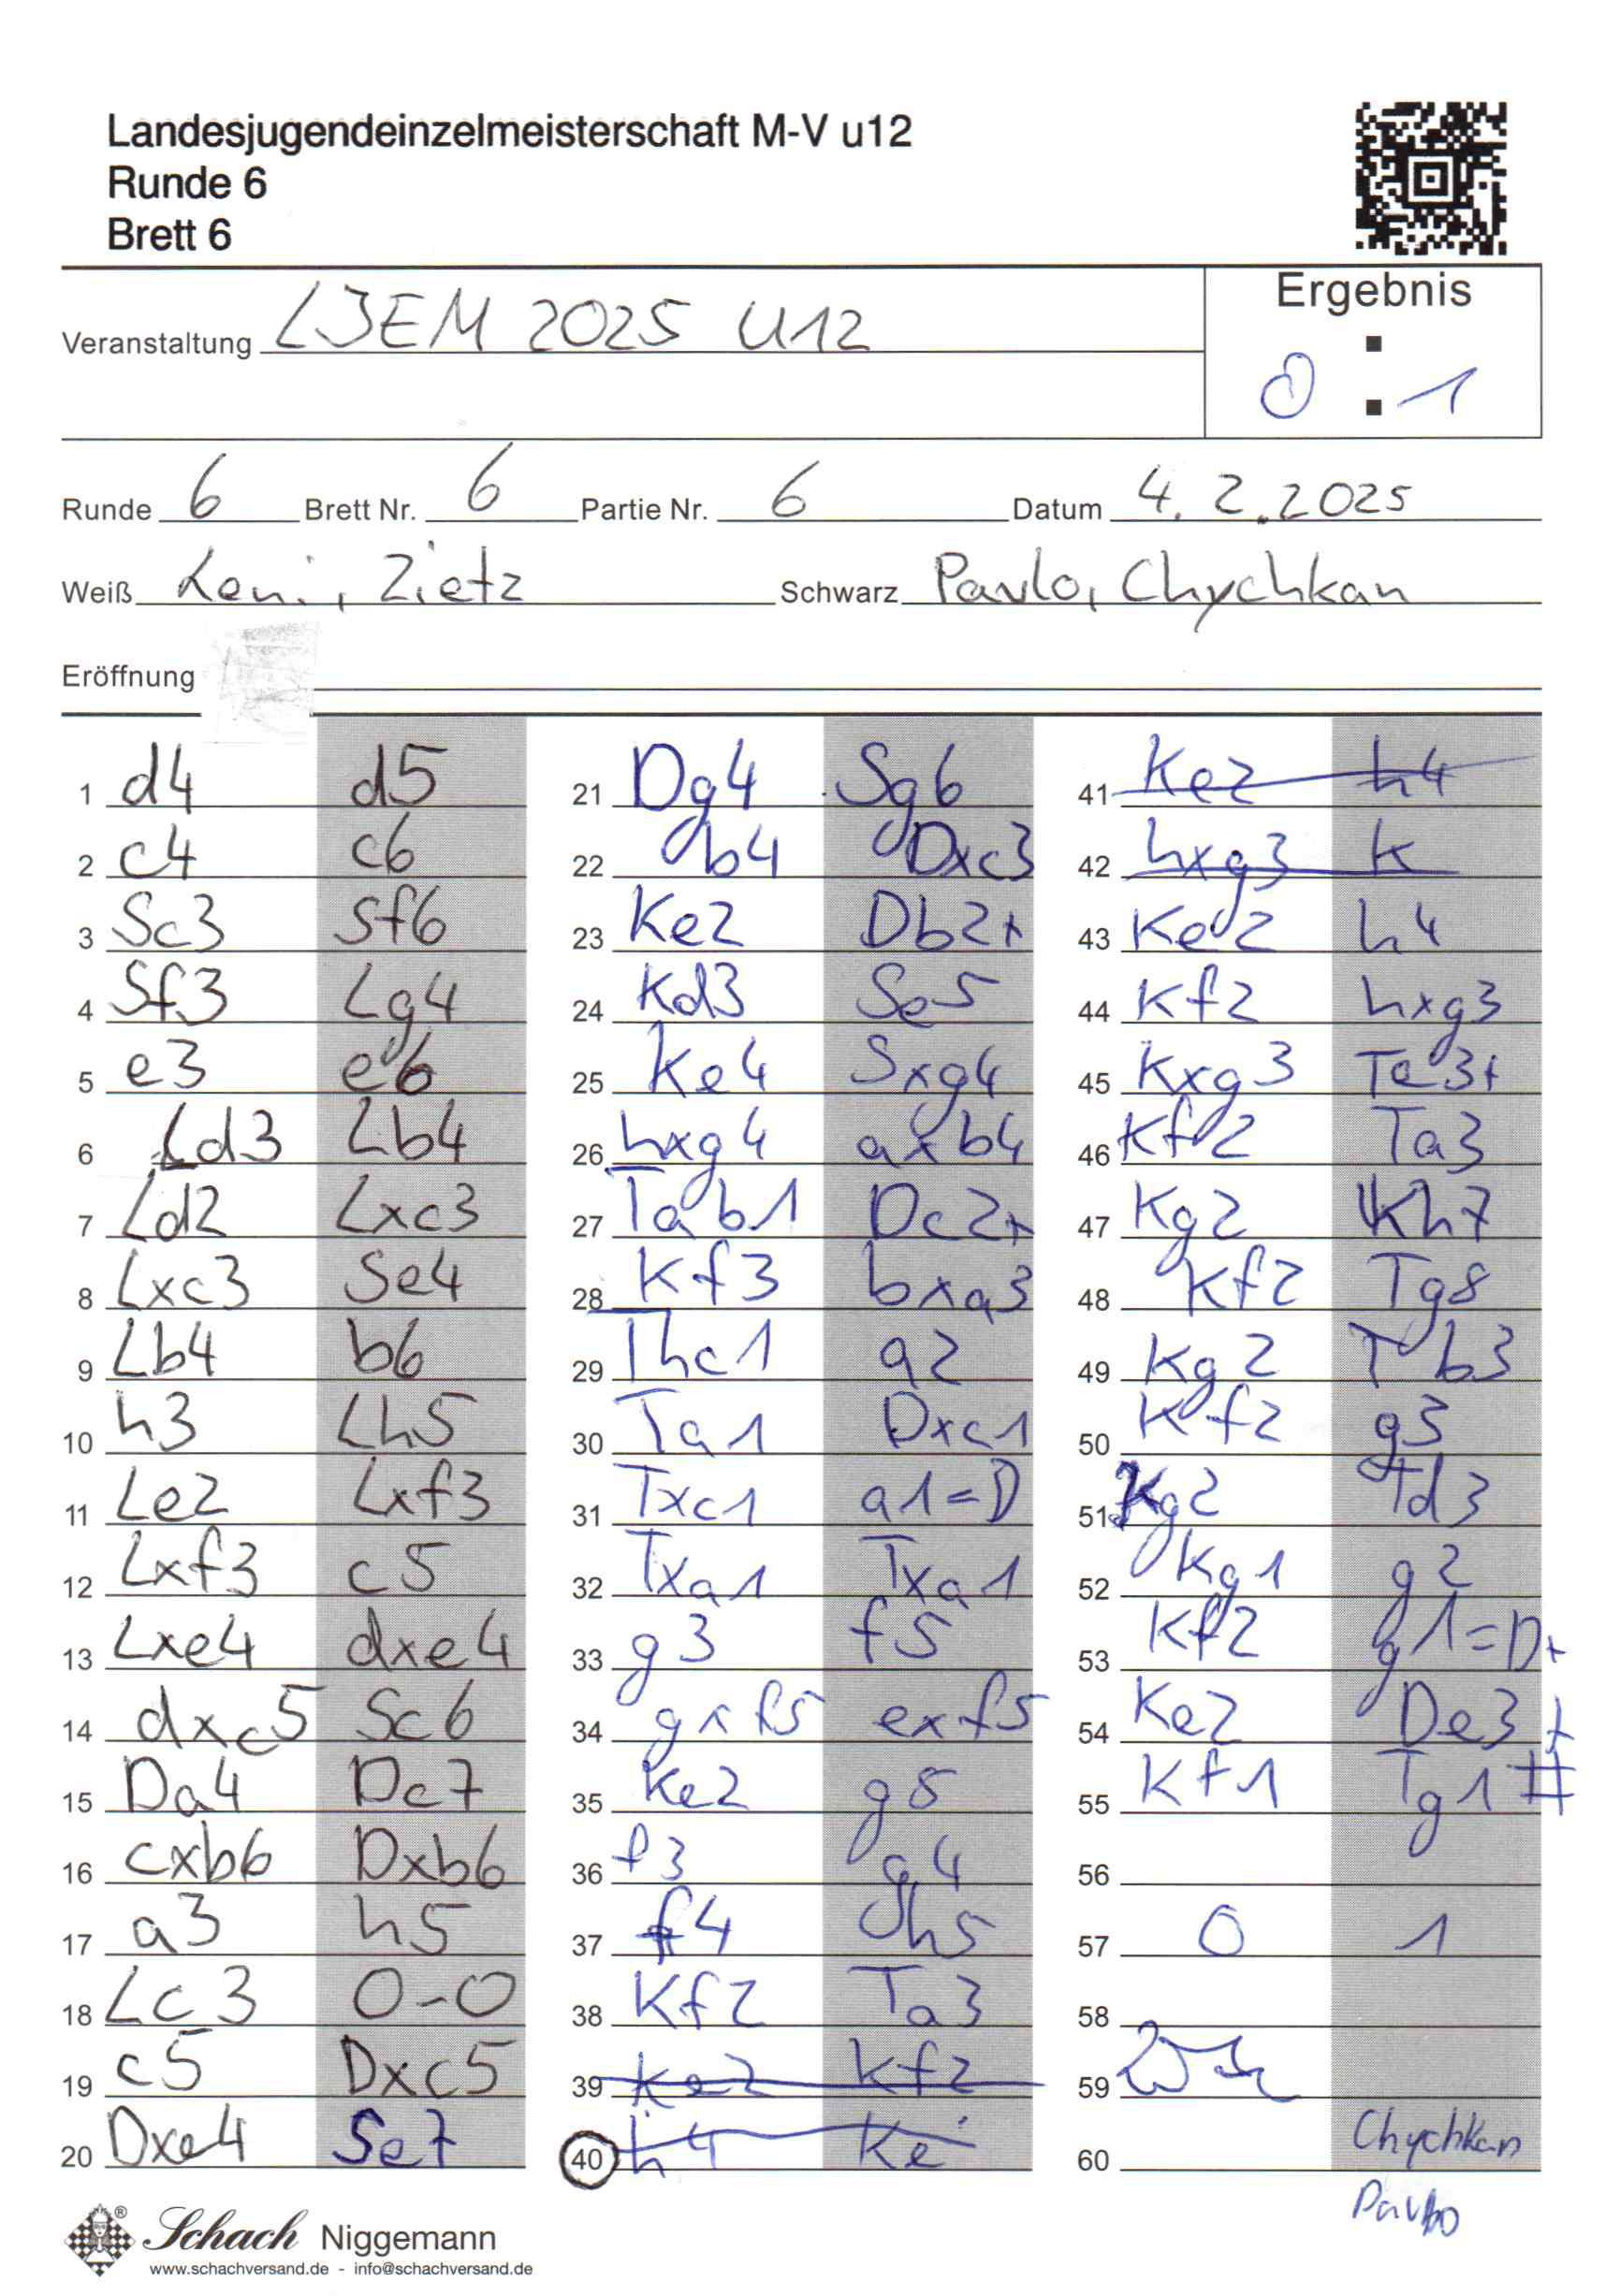 Landesjugendeinzelmeisterschaft M-V u12
Runde 6
Brett 6
Ergebnis
Veranstaltung LJEM 2025 U12
0 : 1
Runde 6 Brett Nr. 6 Partie Nr. 6 Datum 4.2.2025
Weiß Leni, Zietz Schwarz Pavlo, Chychkan
Eröffnung
1 d4 d5
2 c4 c6
3 Sc3 Sf6
4 Sf3 Lg4
5 e3 e6
6 Ld3 Lb4
7 Ld2 Lxc3
8 Lxc3 Se4
9 Lb4 b6
10 h3 Lh5
11 Le2 Lxf3
12 Lxf3 c5
13 Lxe4 dxe4
14 dxc5 Sc6
15 Da4 Dc7
16 cxb6 Dxb6
17 a3 h5
18 Lc3 0-0
19 c5 Dxc5
20 Dxe4 Se7
21 Dg4 Sg6
22 b4 Dxc3
23 Ke2 Db2+
24 Kd3 Se5
25 Ke4 Sxg4
26 hxg4 axb4
27 Tab1 Dc2+
28 Kf3 bxa3
29 Thc1 a2
30 Ta1 Dxc1
31 Txc1 a1=D
32 Txa1 Txa1
33 g3 f5
34 gxf5 exf5
35 Ke2 g5
36 f3 g4
37 f4 h5
38 Kf2 Ta3
39 Ke2 Kf2
40 h4 Ke
41 Ke2 h4
42 hxg3 K
43 Ke2 h4
44 Kf2 hxg3
45 Kxg3 Te3+
46 Kf2 Ta3
47 Kg2 Kh7
48 Kf2 Tg8
49 Kg2 Tb3
50 Kf2 g3
51 Kg2 Td3
52 Kg1 g2
53 Kf2 g1=D+
54 Ke2 De3+
55 Kf1 Tg1#
56
57 0 1
58
59
60 Chychkan
Pavlo
Schach Niggemann
www.schachversand.de - info@schachversand.de